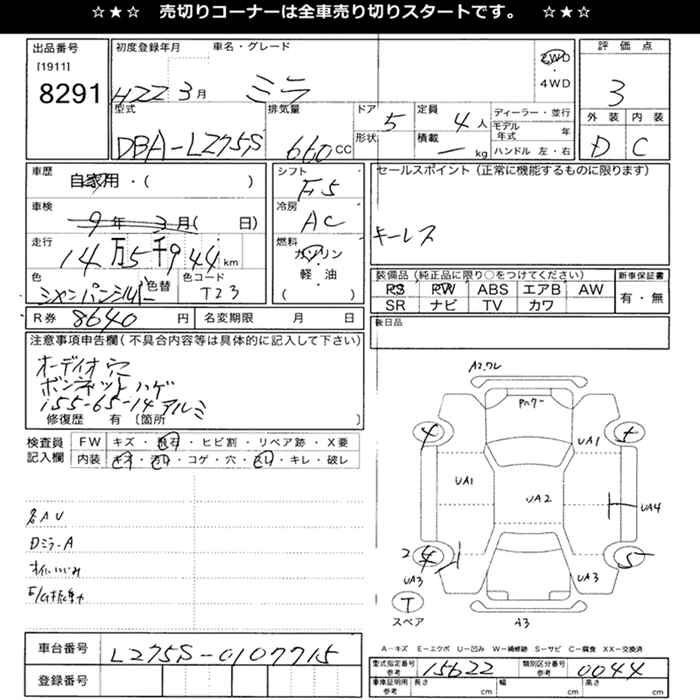 ☆★☆ 売切りコーナーは全車売り切りスタートです。 ☆★☆
出品番号
[1911]
8291
初度登録年月
H22 3月
車名・グレード
ミラ
2WD
・
4WD
評価点
3
外装 内装
D C
型式
DBA-L275S
排気量
660CC
ドア
形状
5
定員
4人
積載
— kg
ディーラー・並行
モデル年式 年
ハンドル 左・右
車歴
自家用・( )
車検
9年 3月( 日)
走行
14万5千944km
色
シャンパンシルバー
色替
色コード
T23
シフト
F5
冷房
AC
燃料
ガソリン
軽・油
( )
セールスポイント (正常に機能するものに限ります)
キーレス
装備品 (純正品に限り○をつけてください)
PS PW ABS エアB AW
SR ナビ TV カワ
新車保証書
有・無
R券 8640円
名変期限 月 日
後日品
注意事項申告欄 (不具合内容等は具体的に記入して下さい)
オーディオ穴
ボンネットハゲ
155-65-14アルミ
修復歴 有 〔箇所 〕
検査員
記入欄
FW キズ・飛石・ヒビ割・リペア跡・X要
内装 キズ・汚れ・コゲ・穴・スレ・キレ・破レ
各AU
Dミラ-A
A2.ワレ
UA1
UA1
UA2
UA4
UA3
UA3
A3
T
スペア
A-キズ E-エクボ U-凹み W-補修跡 S-サビ C-腐食 XX-交換済
車台番号 L275S-0107715
登録番号
型式指定番号
参考
15622
類別区分番号
参考
0044
車庫証明用
参考
長さ cm 幅 cm 高さ cm